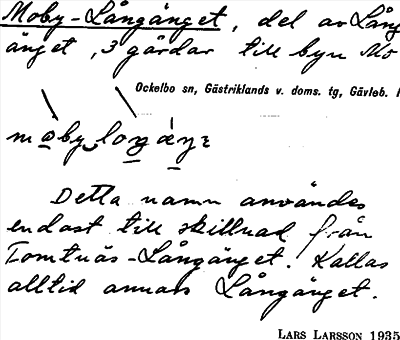 Moby-Långänget, del av Lång
änget, 3 gårdar till byn Mo
Ockelbo sn, Gästriklands v. doms. tg, Gävleb.
Detta namn användes
endast till skillnad från
Tomtnäs-Långänget. Kallas
alltid annars Långänget.
LARS LARSSON 1935